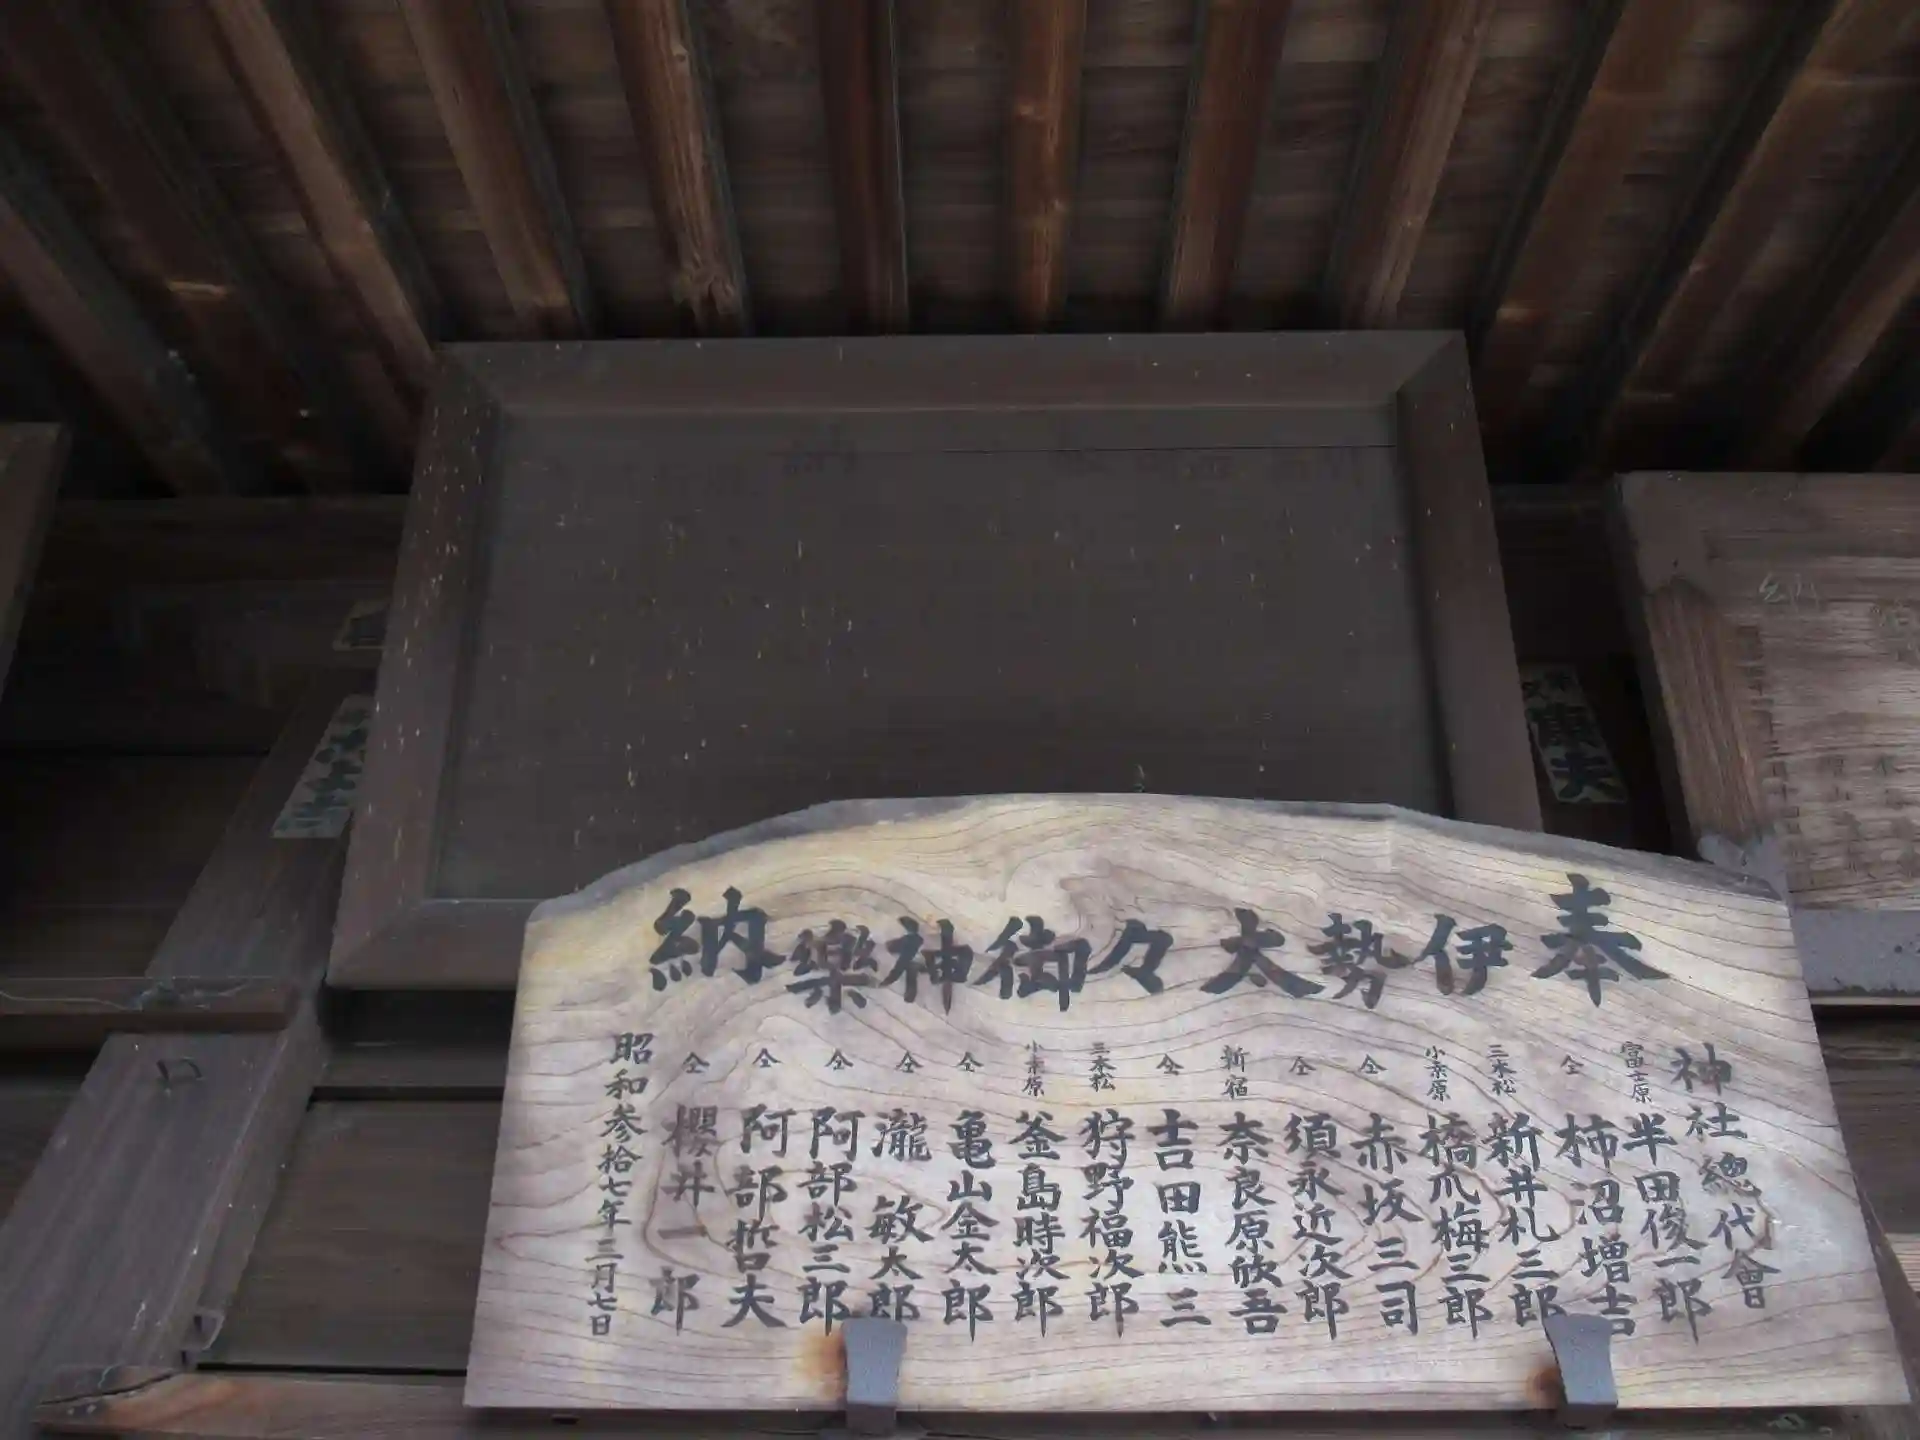 奉伊勢太々御神樂納
神社總代會
富士原 半田俊一郎
仝 柿沼増吉
三本松 新井札三郎
小桒原 橋爪梅三郎
仝 赤坂三司
仝 須永近次郎
新宿 奈良原欣吾
仝 吉田熊三
三本松 狩野福次郎
小桒原 釜島時次郎
仝 亀山金太郎
仝 瀧敏太郎
仝 阿部松三郎
仝 阿部哲夫
仝 櫻井一郎
昭和参拾七年三月七日